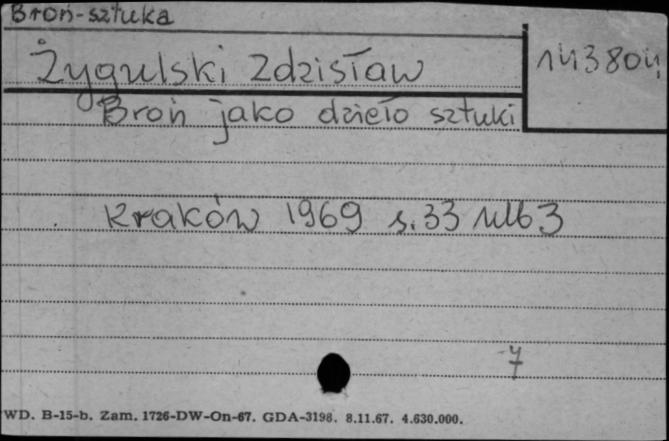 Broń-sztuka
Żygulski Zdzisław
143804
Broń jako dzieło sztuki
Kraków 1969 s. 33 nlb 3
7
WD. B-15-b. Zam. 1726-DW-On-67. GDA-3198. 8.11.67. 4.630.000.